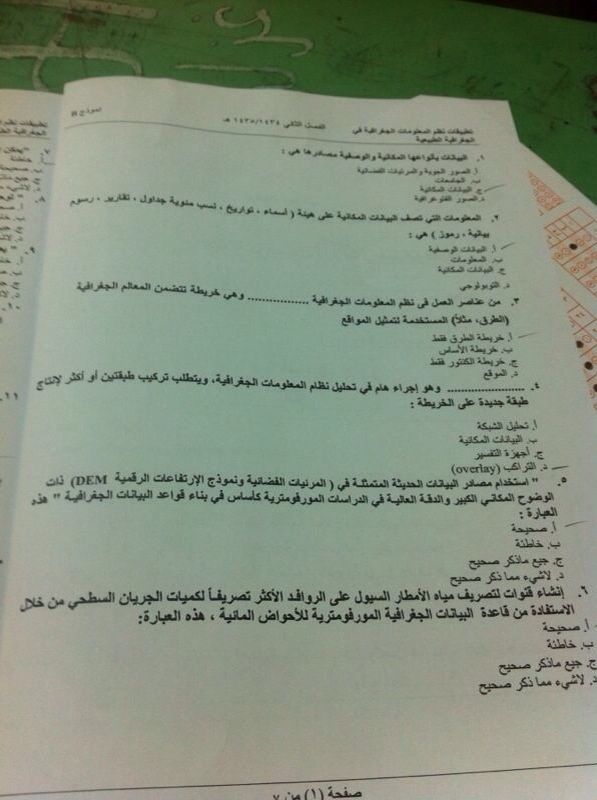 تطبيقات نظم المعلومات الجغرافية في
الجغرافية الطبيعية
الفصل الثاني ١٤٣٥/١٤٣٤ هـ
نموذج B
١. البيانات بأنواعها المكانية والوصفية مصادرها هي :
أ. الصور الجوية والمرئيات الفضائية
ب. الجامعات
ج. البيانات المكانية
د. الصور الفلتوغرافية
٢. المعلومات التي تصف البيانات المكانية على هيئة ( أسماء ، تواريخ ، نسب مئوية جداول ، تقارير ، رسوم
بيانية ، رموز ) هي :
أ. البيانات الوصفية
ب. المعلومات
ج. البيانات المكانية
د. التوبولوجي
٣. من عناصر العمل فى نظم المعلومات الجغرافية ................ وهي خريطة تتضمن المعالم الجغرافية
(الطرق، مثلاً) المستخدمة لتمثيل المواقع
أ. خريطة الطرق فقط
ب. خريطة الأساس
ج. خريطة الكنتور فقط
د. الموقع
٤. ...................... وهو إجراء هام في تحليل نظام المعلومات الجغرافية، ويتطلب تركيب طبقتين أو أكثر لإنتاج
طبقة جديدة على الخريطة :
أ. تحليل الشبكة
ب. البيانات المكانية
ج. أجهزة التفسير
د. التراكب (overlay)
٥. " استخدام مصادر البيانات الحديثة المتمثلة في ( المرئيات الفضائية ونموذج الإرتفاعات الرقمية DEM) ذات
الوضوح المكاني الكبير والدقة العالية في الدراسات المورفومترية كأساس في بناء قواعد البيانات الجغرافية " هذه
العبارة :
أ. صحيحة
ب. خاطئة
ج. جيع ماذكر صحيح
د. لاشيء مما ذكر صحيح
٦. إنشاء قنوات لتصريف مياه الأمطار السيول على الروافد الأكثر تصريفاً لكميات الجريان السطحي من خلال
الاستفادة من قاعدة البيانات الجغرافية المورفومترية للأحواض المائية ، هذه العبارة:
أ. صحيحة
ب. خاطئة
ج. جيع ماذكر صحيح
د. لاشيء مما ذكر صحيح
صفحة (١) من ٧